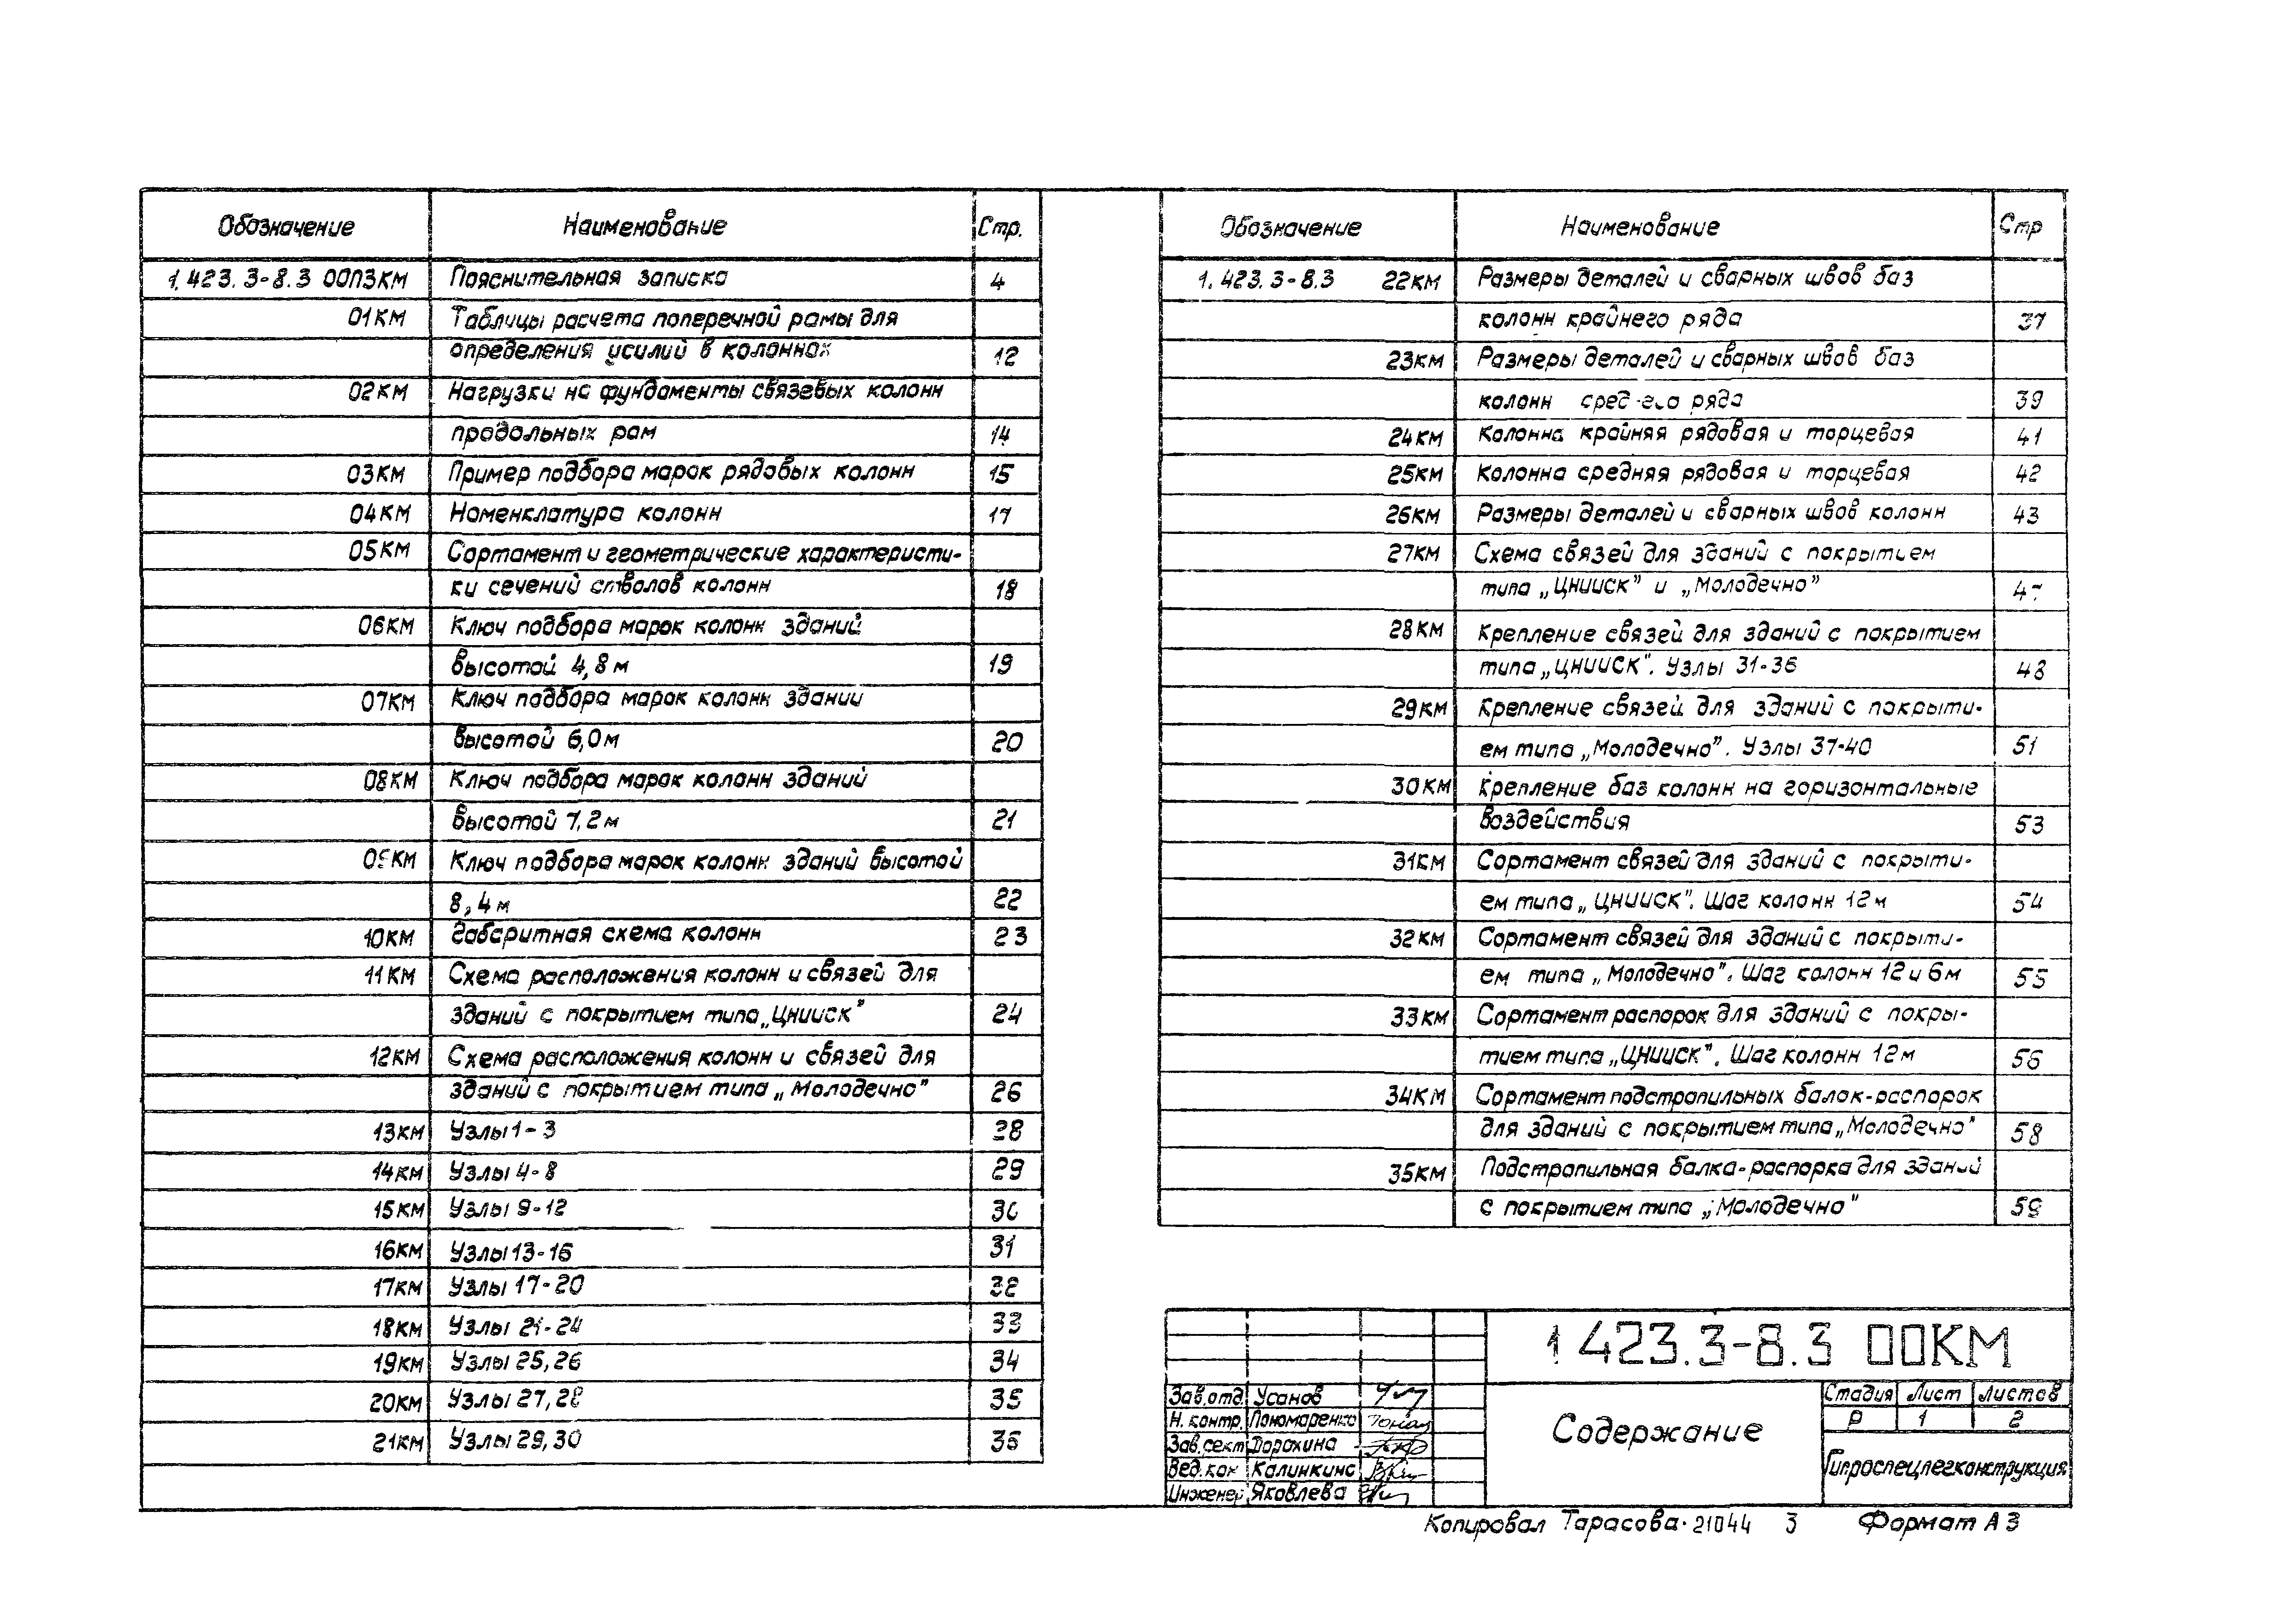 Обозначение Наименование Стр.
1.423.3-8.3 00ПЗКМ Пояснительная записка 4
01КМ Таблицы расчета поперечной рамы для
определения усилий в колоннах 12
02КМ Нагрузки на фундаменты связевых колонн
продольных рам 14
03КМ Пример подбора марок рядовых колонн 15
04КМ Номенклатура колонн 17
05КМ Сортамент и геометрические характеристи-
ки сечений стволов колонн 18
06КМ Ключ подбора марок колонн зданий
высотой 4,8м 19
07КМ Ключ подбора марок колонн здании
высотой 6,0м 20
08КМ Ключ подбора марок колонн зданий
высотой 7,2м 21
09КМ Ключ подбора марок колонн зданий высотой
8,4м 22
10КМ Габаритная схема колонн 23
11КМ Схема расположения колонн и связей для
зданий с покрытием типа „ЦНИИСК” 24
12КМ Схема расположения колонн и связей для
зданий с покрытием типа „Молодечно” 26
13КМ Узлы 1-3 28
14КМ Узлы 4-8 29
15КМ Узлы 9-12 30
16КМ Узлы 13-16 31
17КМ Узлы 17-20 32
18КМ Узлы 21-24 33
19КМ Узлы 25,26 34
20КМ Узлы 27,28 35
21КМ Узлы 29,30 36
Обозначение Наименование Стр
1.423.3-8.3 22КМ Размеры деталей и сварных швов баз
колонн крайнего ряда 37
23КМ Размеры деталей и сварных швов баз
колонн среднего ряда 39
24КМ Колонна крайняя рядовая и торцевая 41
25КМ Колонна средняя рядовая и торцевая 42
26КМ Размеры деталей и сварных швов колонн 43
27КМ Схема связей для зданий с покрытием
типа „ЦНИИСК” и „Молодечно” 47
28КМ Крепление связей для зданий с покрытием
типа „ЦНИИСК”. Узлы 31-36 48
29КМ Крепление связей для зданий с покрыти-
ем типа „Молодечно”. Узлы 37-40 51
30КМ Крепление баз колонн на горизонтальные
воздействия 53
31КМ Сортамент связей для зданий с покрыти-
ем типа „ЦНИИСК”. Шаг колонн 12м 54
32КМ Сортамент связей для зданий с покрыти-
ем типа „Молодечно”. Шаг колонн 12 и 6м 55
33КМ Сортамент распорок для зданий с покры-
тием типа „ЦНИИСК”. Шаг колонн 12м 56
34КМ Сортамент подстропильных балок-распорок
для зданий с покрытием типа „Молодечно” 58
35КМ Подстропильная балка-распорка для зданий
с покрытием типа „Молодечно” 59
1 423.3-8.3 00КМ
Зав.отд. Усанов
Н. контр. Пономаренко
Зав.сект Дорохина
Вед.кон Калинкина
Инженер Яковлева
Содержание
Стадия Лист Листов
Р 1 2
Гипроспецлегконструкция
Копировал Тарасова. 21044 3 Формат А3